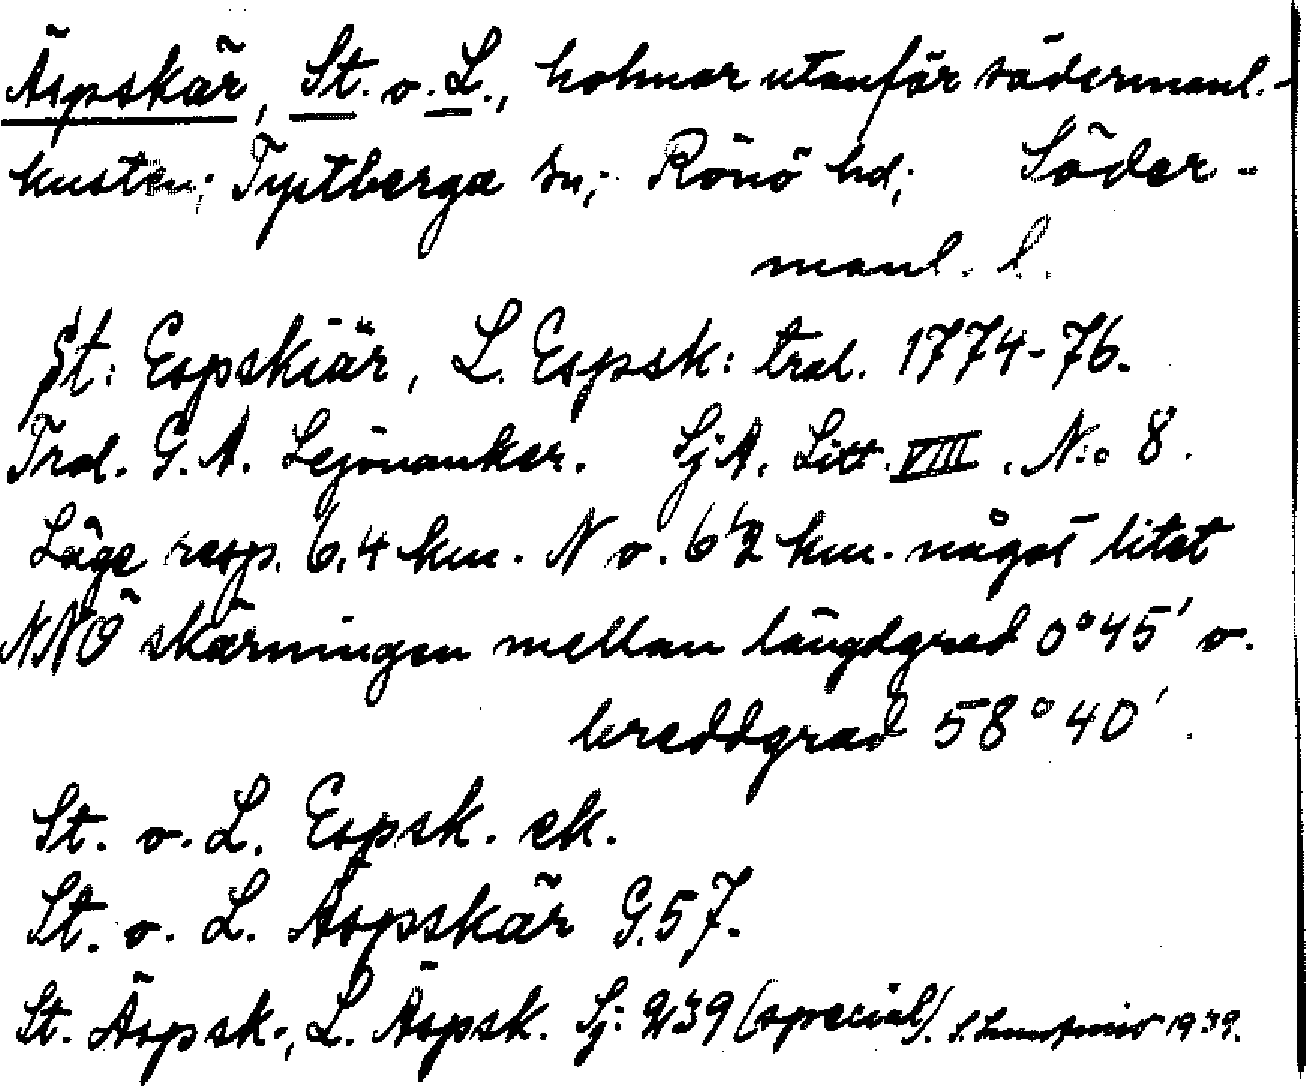 Äspskär, St. o. L., holmar utanför södermanl.-
kusten; Tystberga sn; Rönö hd; Söder-
manl. l.
St: Espskiär, L. Espsk: tral. 1774-76.
Tral. G. A. Lejonanker. Sj A. Litt. VIII. N:o 8.
Läge resp. 6.4 km. N o. 6,2 km. något litet
NNÖ skärningen mellan längdgrad 0°45' o.
breddgrad 58°40'.
St. o. L. Espsk. ek.
St. o. L. Äspskär G.57.
St. Äspsk., L. Äspsk. Sj: 239 (special). 1939.